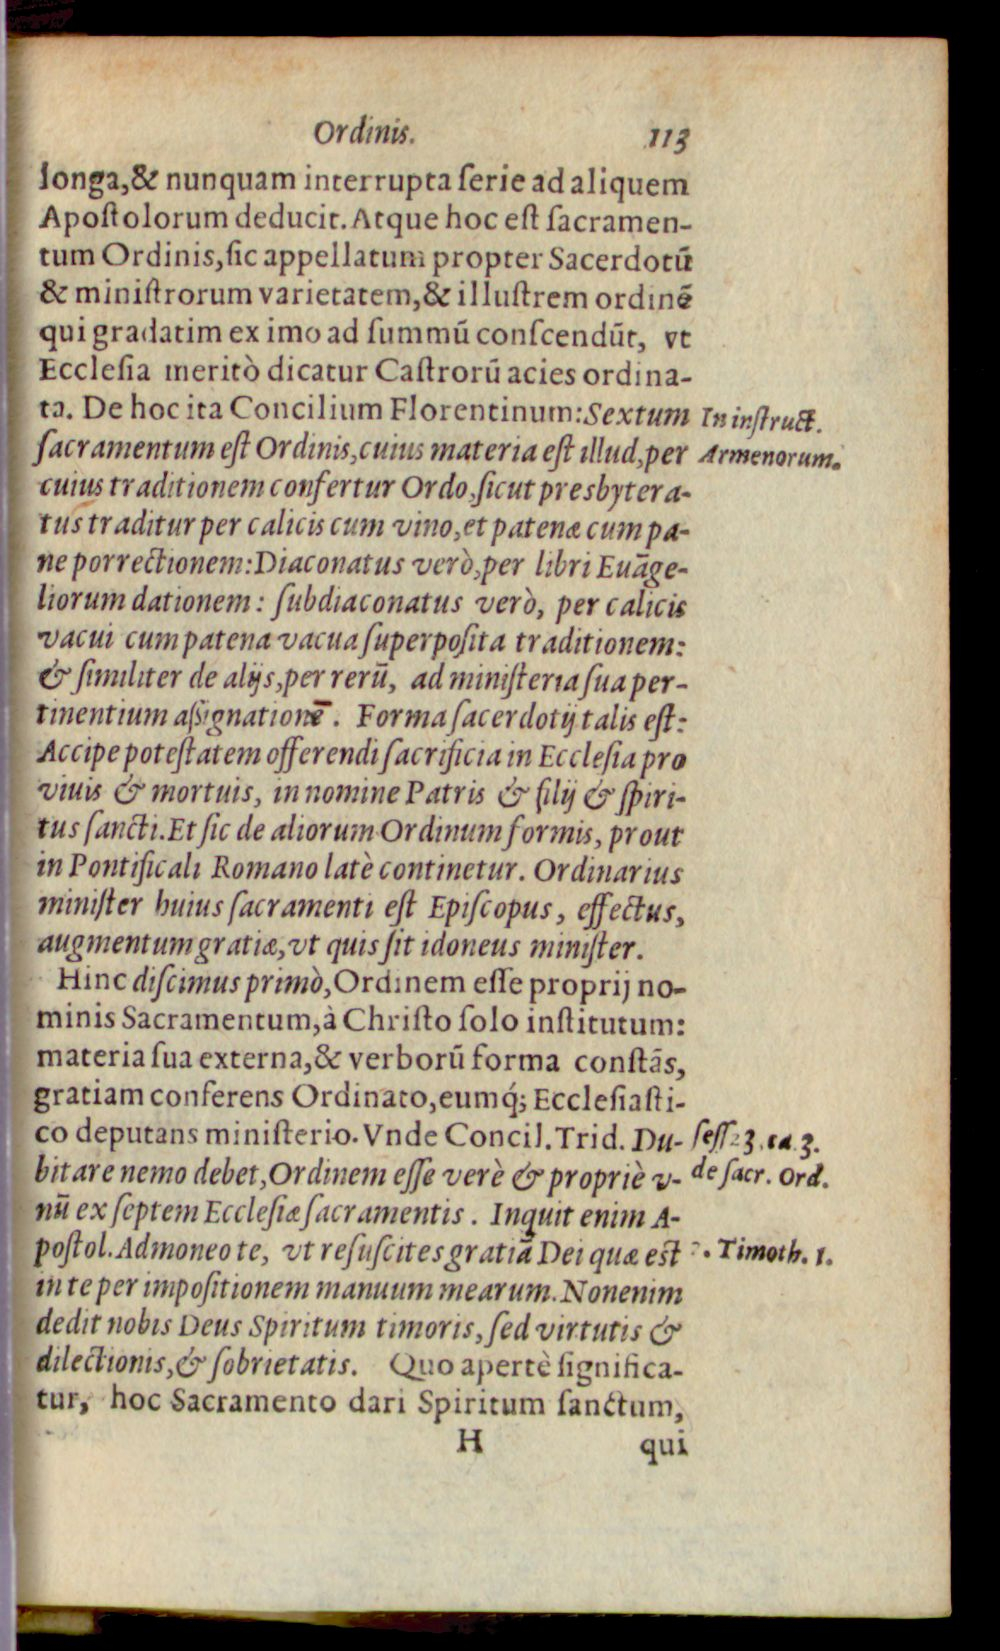 Ordinis. 113
longa,& nunquam interrupta ſerie ad aliquem
Apoſtolorum deducit. Atque hoc eſt ſacramen-
tum Ordinis, ſic appellatum propter Sacerdotū
& miniſtrorum varietatem,& illuſtrem ordinē
qui gradatim ex imo ad ſummū conſcendūt, vt
Eccleſia meritò dicatur Caſtrorū acies ordina-
ta. De hoc ita Concilium Florentinum: Sextum
In inſtruct.
ſacramentum eſt Ordinis, cuius materia eſt illud, per
Armenorum.
cuius traditionem confertur Ordo, ſicut presbytera-
tus traditur per calicis cum vino, et patenæ cum pa-
ne porrectionem: Diaconatus verò, per libri Euāge-
liorum dationem: ſubdiaconatus verò, per calicis
vacui cum patena vacua ſuperpoſita traditionem:
& ſimiliter de alijs, per rerū, ad miniſteria ſua per-
tinentium aſsignationē. Forma ſacerdotij talis eſt:
Accipe poteſtatem offerendi ſacrificia in Eccleſia pro
viuis & mortuis, in nomine Patris & filij & ſpiri-
tus ſancti. Et ſic de aliorum Ordinum formis, prout
in Pontificali Romano latè continetur. Ordinarius
miniſter huius ſacramenti eſt Epiſcopus, effectus,
augmentum gratiæ, vt quis ſit idoneus miniſter.
Hinc diſcimus primò, Ordinem eſſe proprij no-
minis Sacramentum, à Chriſto ſolo inſtitutum:
materia ſua externa,& verborū forma conſtās,
gratiam conferens Ordinato, eumq́; Eccleſiaſti-
co deputans miniſterio. Vnde Concil. Trid. Du-
ſeſſ. 23. ca. 3.
bitare nemo debet, Ordinem eſſe verè & propriè v-
de ſacr. Ord.
nū ex ſeptem Eccleſiæ ſacramentis. Inquit enim A-
poſtol. Admoneo te, vt reſuſcites gratiā Dei quæ eſt
2. Timoth. 1.
in te per impoſitionem manuum mearum. Non enim
dedit nobis Deus Spiritum timoris, ſed virtutis &
dilectionis,& ſobrietatis. Quo apertè ſignifica-
tur, hoc Sacramento dari Spiritum ſanctum,
H qui